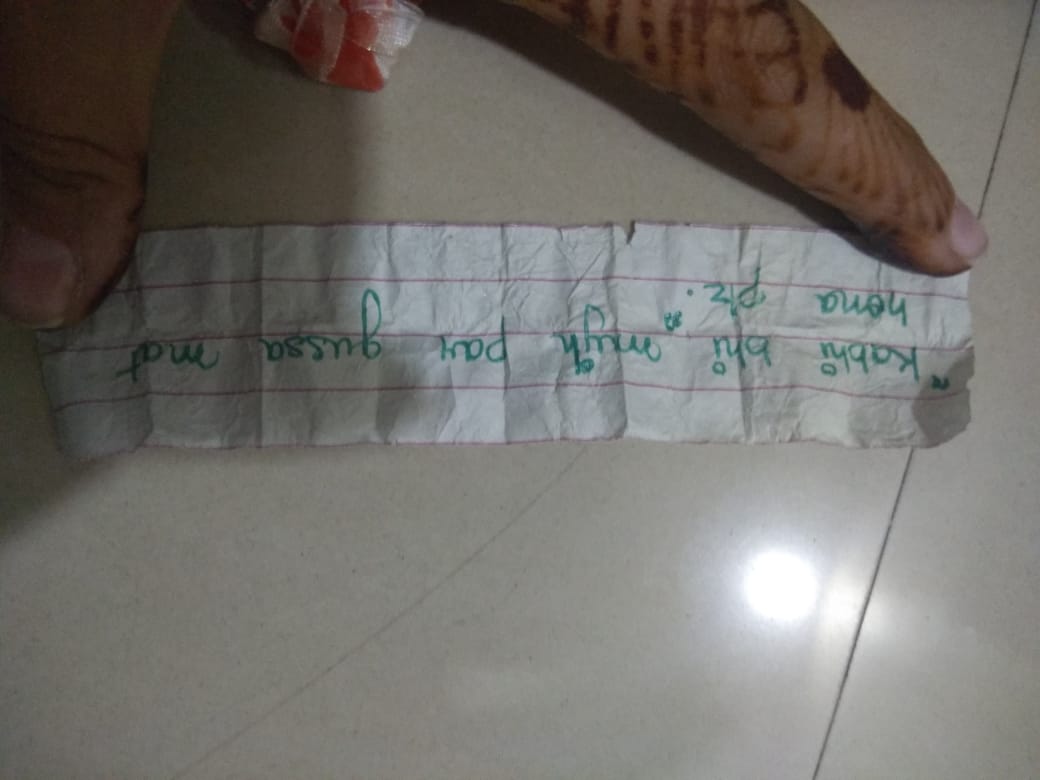 "Kabhi bhi mujh par gussa mat
hona plz."